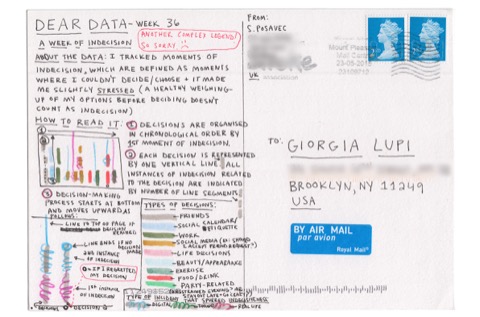 DEAR DATA - WEEK 36
ANOTHER COMPLEX LEGEND!
SO SORRY
A WEEK OF INDECISION
ABOUT THE DATA: I TRACKED MOMENTS OF
INDECISION, WHICH ARE DEFINED AS MOMENTS
WHERE I COULDN'T DECIDE/CHOOSE + IT MADE
ME SLIGHTLY STRESSED (A HEALTHY WEIGHING-
UP OF MY OPTIONS BEFORE DECIDING DOESN'T
COUNT AS INDECISION)
HOW TO READ IT:
① DECISIONS ARE ORGANISED
IN CHRONOLOGICAL ORDER BY
1ST MOMENT OF INDECISION.
② EACH DECISION IS REPRESENTED
BY ONE VERTICAL LINE. ALL
INSTANCES OF INDECISION RELATED
TO THE DECISION ARE INDICATED
BY NUMBER OF LINE SEGMENTS.
③ DECISION-MAKING
PROCESS STARTS AT BOTTOM
AND MOVES UPWARD AS
FOLLOWS:
LINE TO TOP OF PAGE IF
DECISION
LINE ENDS IF NO
DECISION
2ND INSTANCE
OF INDECISION
IF I REGRETTED
MY DECISION
1ST INSTANCE
OF INDECISION
TYPES OF DECISIONS:
FRIENDS
SOCIAL CALENDAR/
ETIQUETTE
WORK
SOCIAL MEDIA
LIFE DECISIONS
BEAUTY/APPEARANCE
EXERCISE
FOOD/DRINK
PARTY-RELATED
TYPE OF INCIDENT
THAT SPURRED INDECISIVENESS
DIGITAL
FROM:
S. POSAVEC
UK
Mount Pleasant
Mail Centre
TO:
GIORGIA LUPI
BROOKLYN, NY 11249
USA
BY AIR MAIL
par avion
Royal Mail